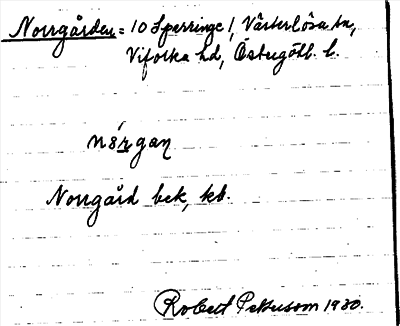 Norrgården = 10 Sperringe 1, Västerlösa sn,
Vifolka hd, Östergötl. l.
nórgan
Norrgård bek, kb.
Robert Pettersson 1930.